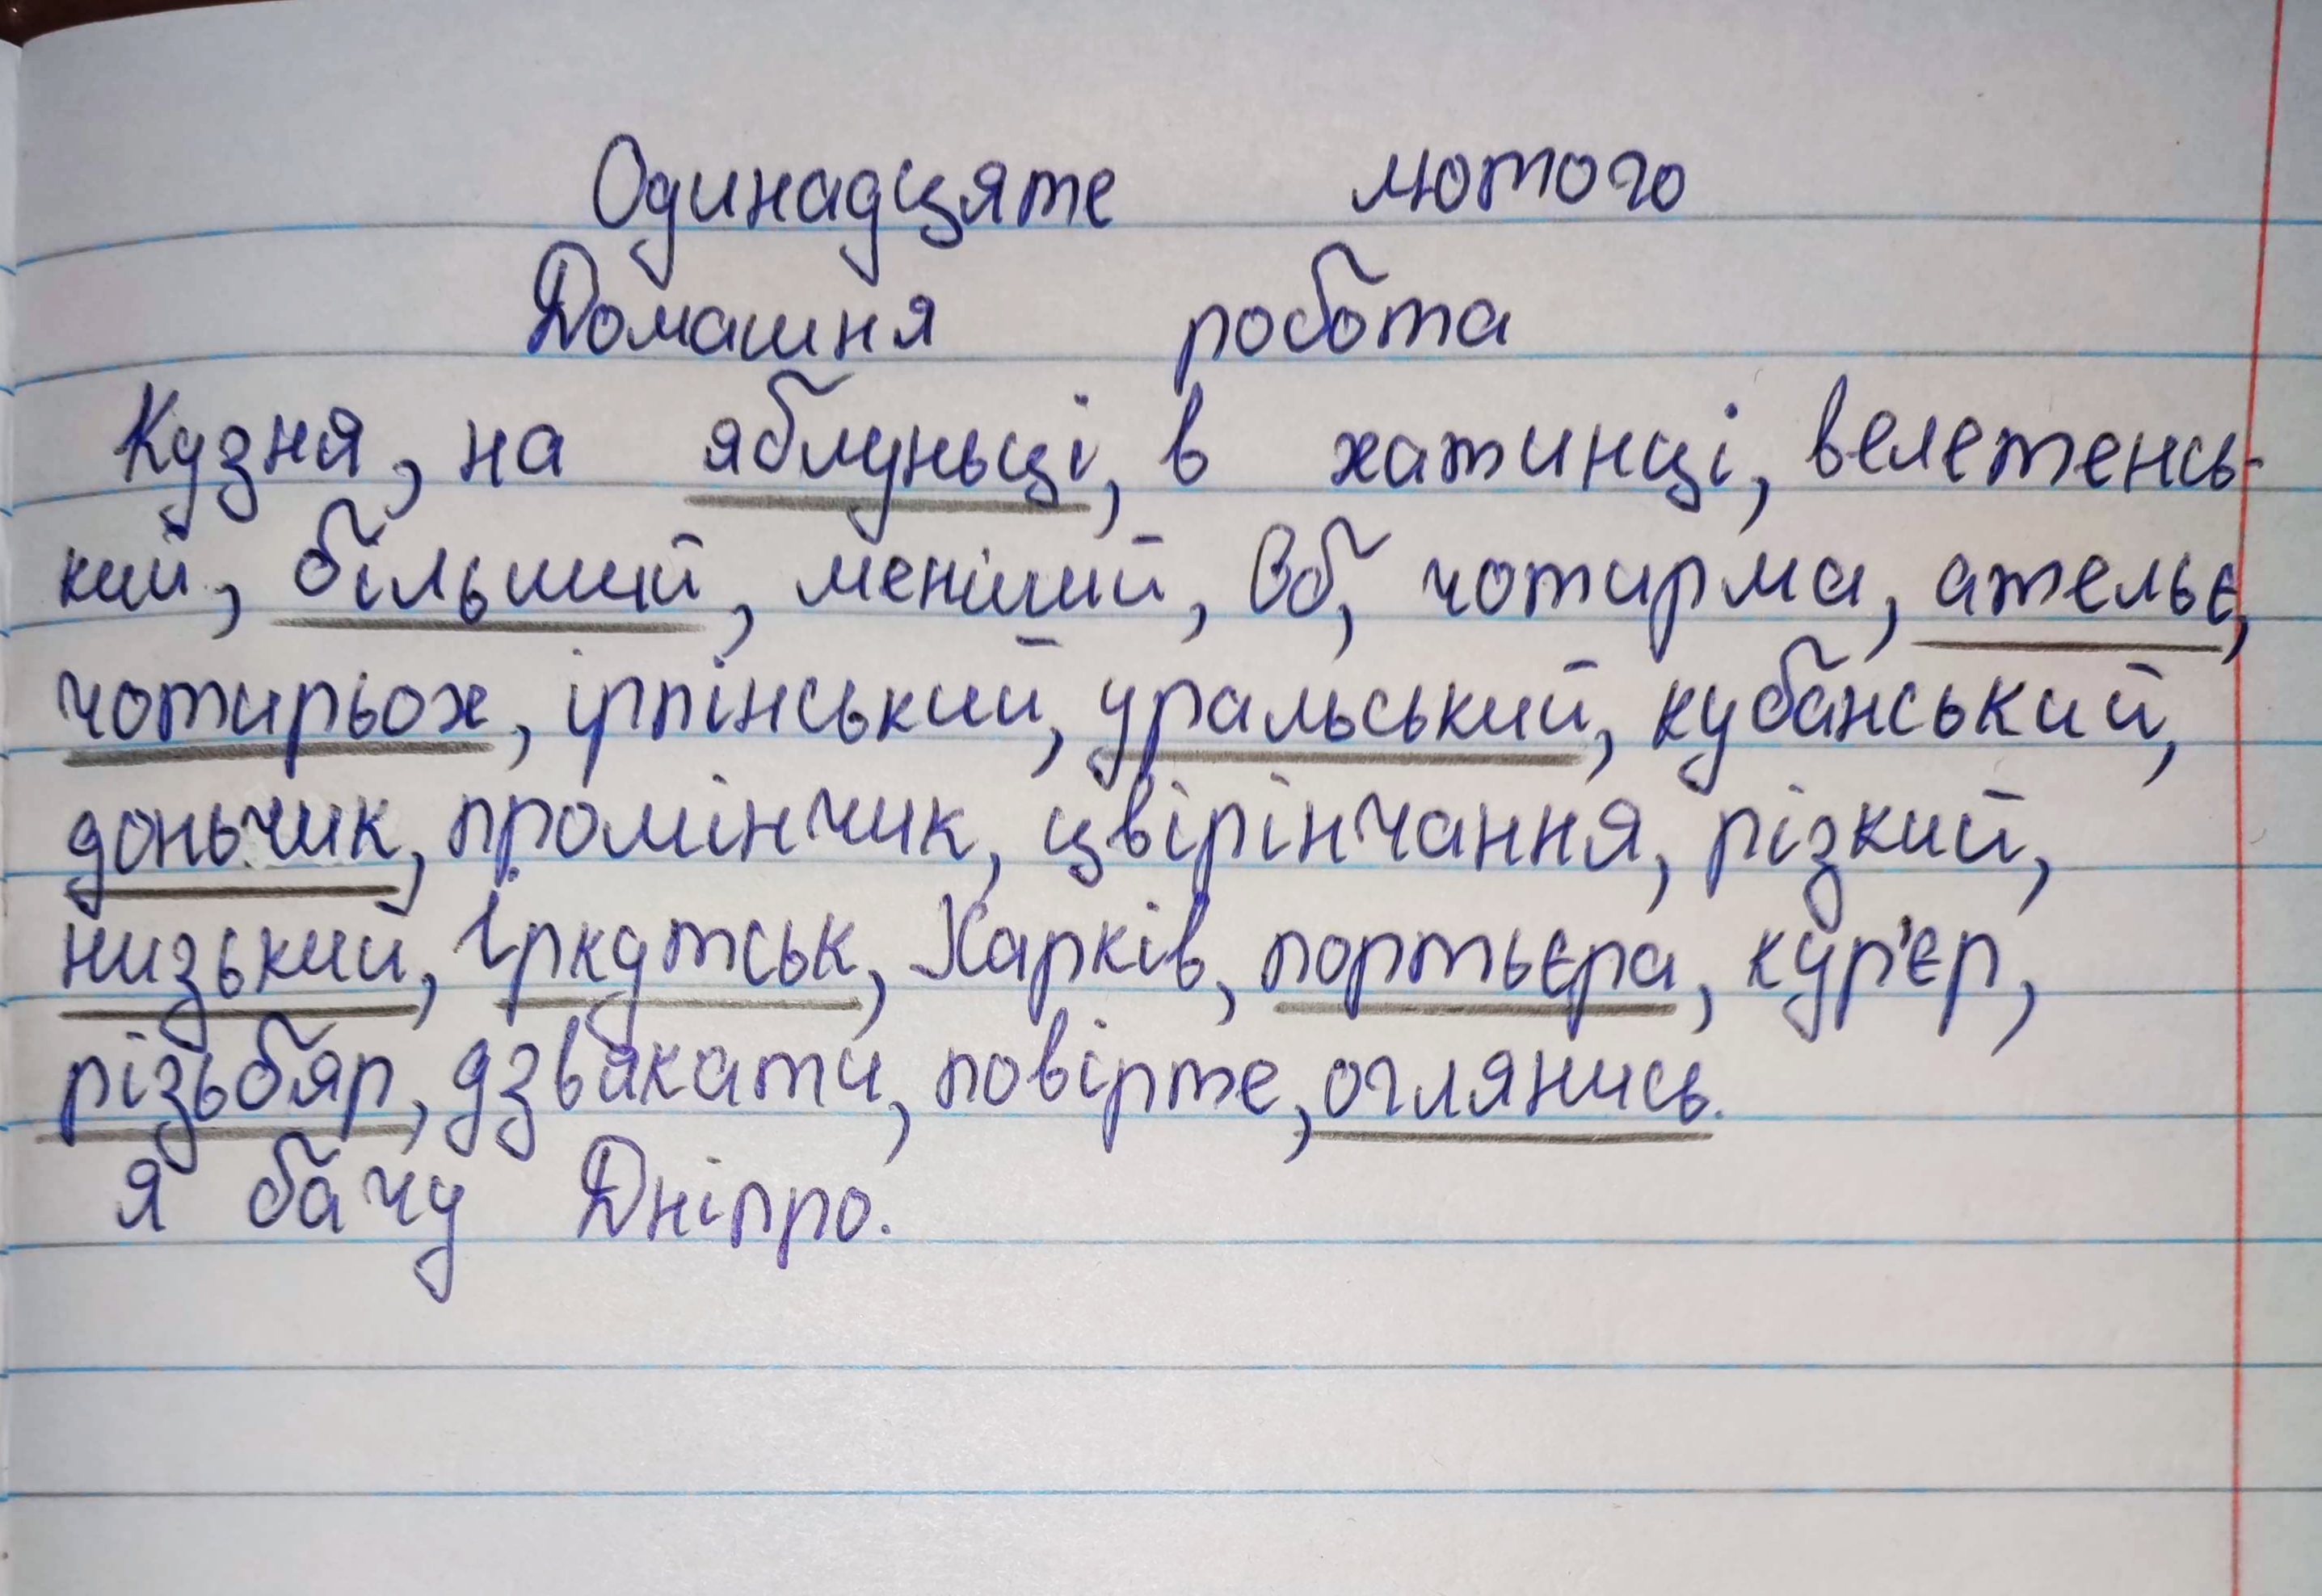 Одинадцяте лютого
Домашня робота
Кузня, на яблуньці, в хатинці, велетенсь-
кий, більший, менший, Об, чотирма, ательє,
чотирьох, ірпінський, уральський, кубанський,
доньчик, промінчик, цвірінчання, різкий,
низький, Іркутськ, Харків, портьєра, кур'єр,
різьбяр, дзвякати, повірте, оглянись.
Я бачу Дніпро.